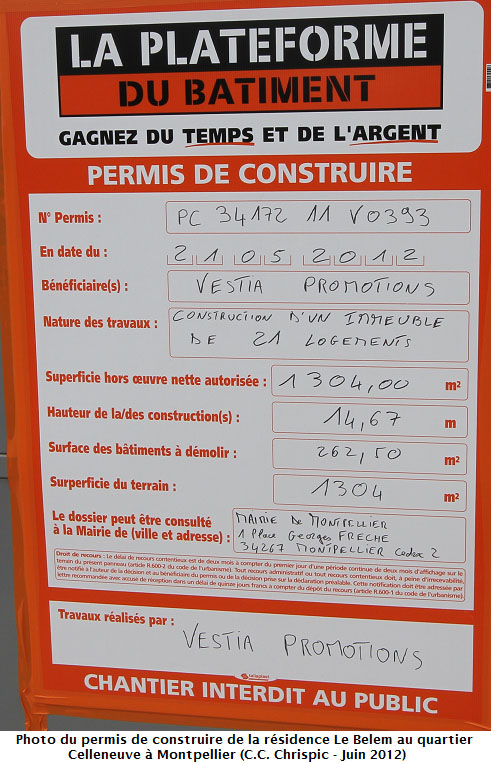 LA PLATEFORME
DU BATIMENT
GAGNEZ DU TEMPS ET DE L'ARGENT
PERMIS DE CONSTRUIRE
N° Permis : PC 34172 11 V0393
En date du : 21 05 2012
Bénéficiaire(s) : VESTIA PROMOTIONS
Nature des travaux : CONSTRUCTION D'UN IMMEUBLE
DE 21 LOGEMENTS
Superficie hors œuvre nette autorisée : 1304,00 m²
Hauteur de la/des construction(s) : 14,67 m
Surface des bâtiments à démolir : 262,50 m²
Surperficie du terrain : 1304 m²
Le dossier peut être consulté
à la Mairie de (ville et adresse) :
MAIRIE DE MONTPELLIER
1 Place Georges FRECHE
34267 MONTPELLIER Cedex 2
Droit de recours : Le délai de recours contentieux est de deux mois à compter du premier jour d'une période continue de deux mois d'affichage sur le
terrain du présent panneau (article R.600-2 du code de l'urbanisme). Tout recours administratif ou tout recours contentieux doit, à peine d'irrecevabilité,
être notifié à l'auteur de la décision et au bénéficiaire du permis ou de la décision prise sur la déclaration préalable. Cette notification doit être adressée par
lettre recommandée avec accusé de réception dans un délai de quinze jours francs à compter du dépôt du recours (article R.600-1 du code de l'urbanisme).
Travaux réalisés par :
VESTIA PROMOTIONS
CHANTIER INTERDIT AU PUBLIC
Photo du permis de construire de la résidence Le Belem au quartier
Celleneuve à Montpellier (C.C. Chrispic - Juin 2012)